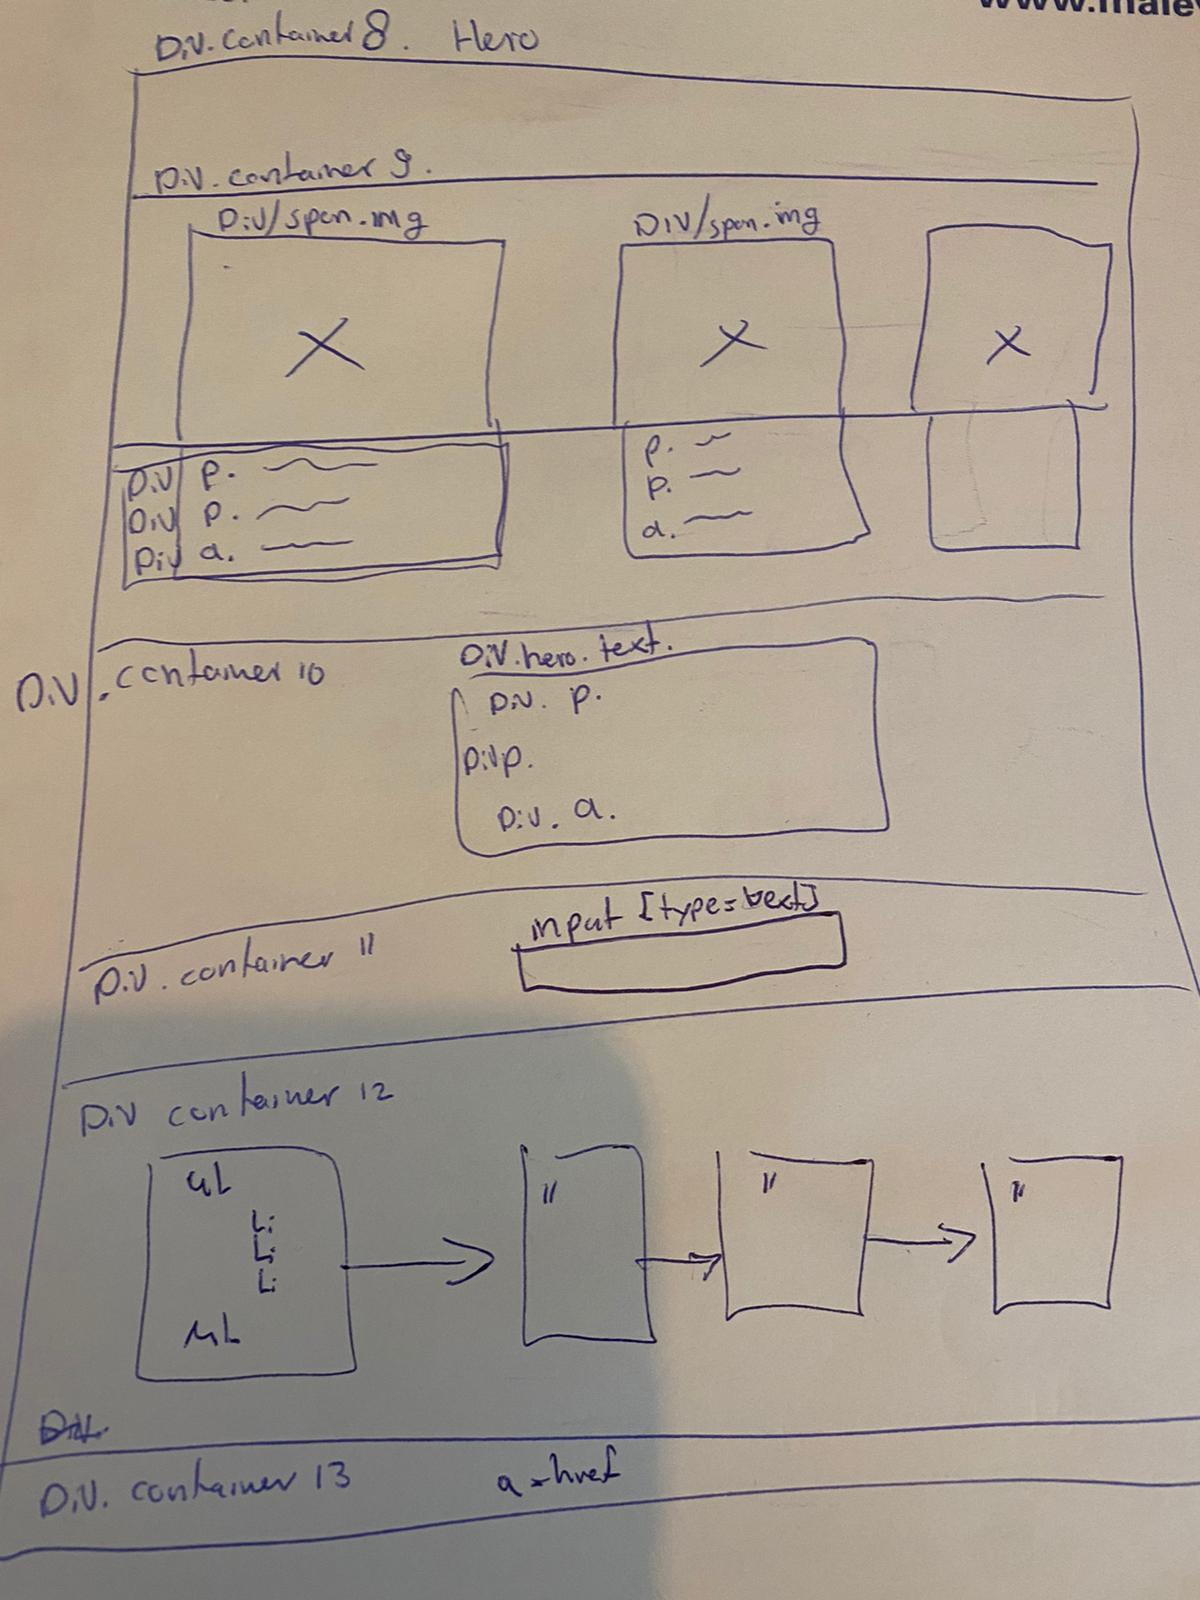 Div. container 8. Hero
Div. container 9.
Div/span.img
Div/span.img
X
X
X
Div p.
Div p.
Div a.
p.
p.
a.
Div. container 10
Div.hero.text.
Div. p.
Div p.
Div. a.
Div. container 11
input [type=text]
Div container 12
uL
Li
Li
Li
uL
"
"
"
Div. container 13
a=href